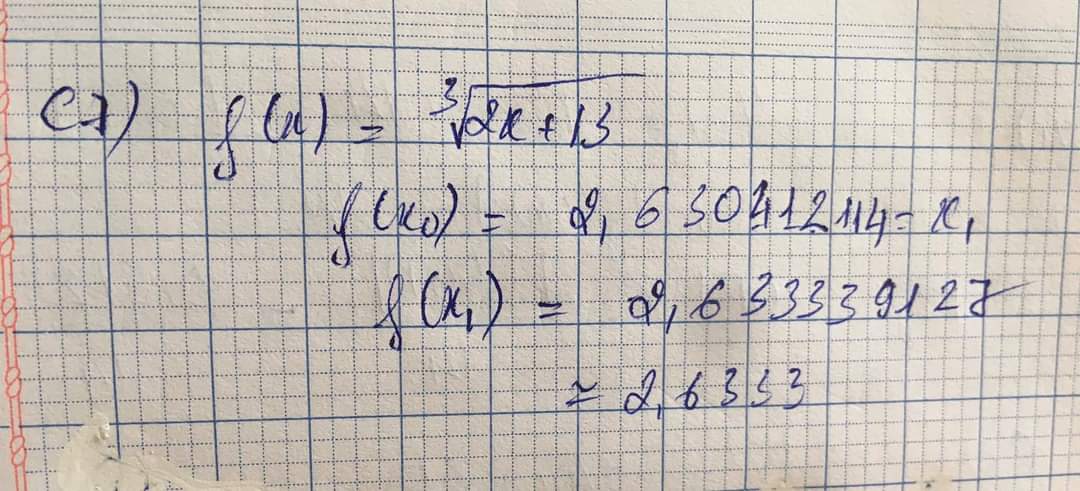 C7) f(x) = ∛2x+13
f(x₀) = 2,630412114 = x₁
f(x₁) = 2,633339127
≈ 2,6333